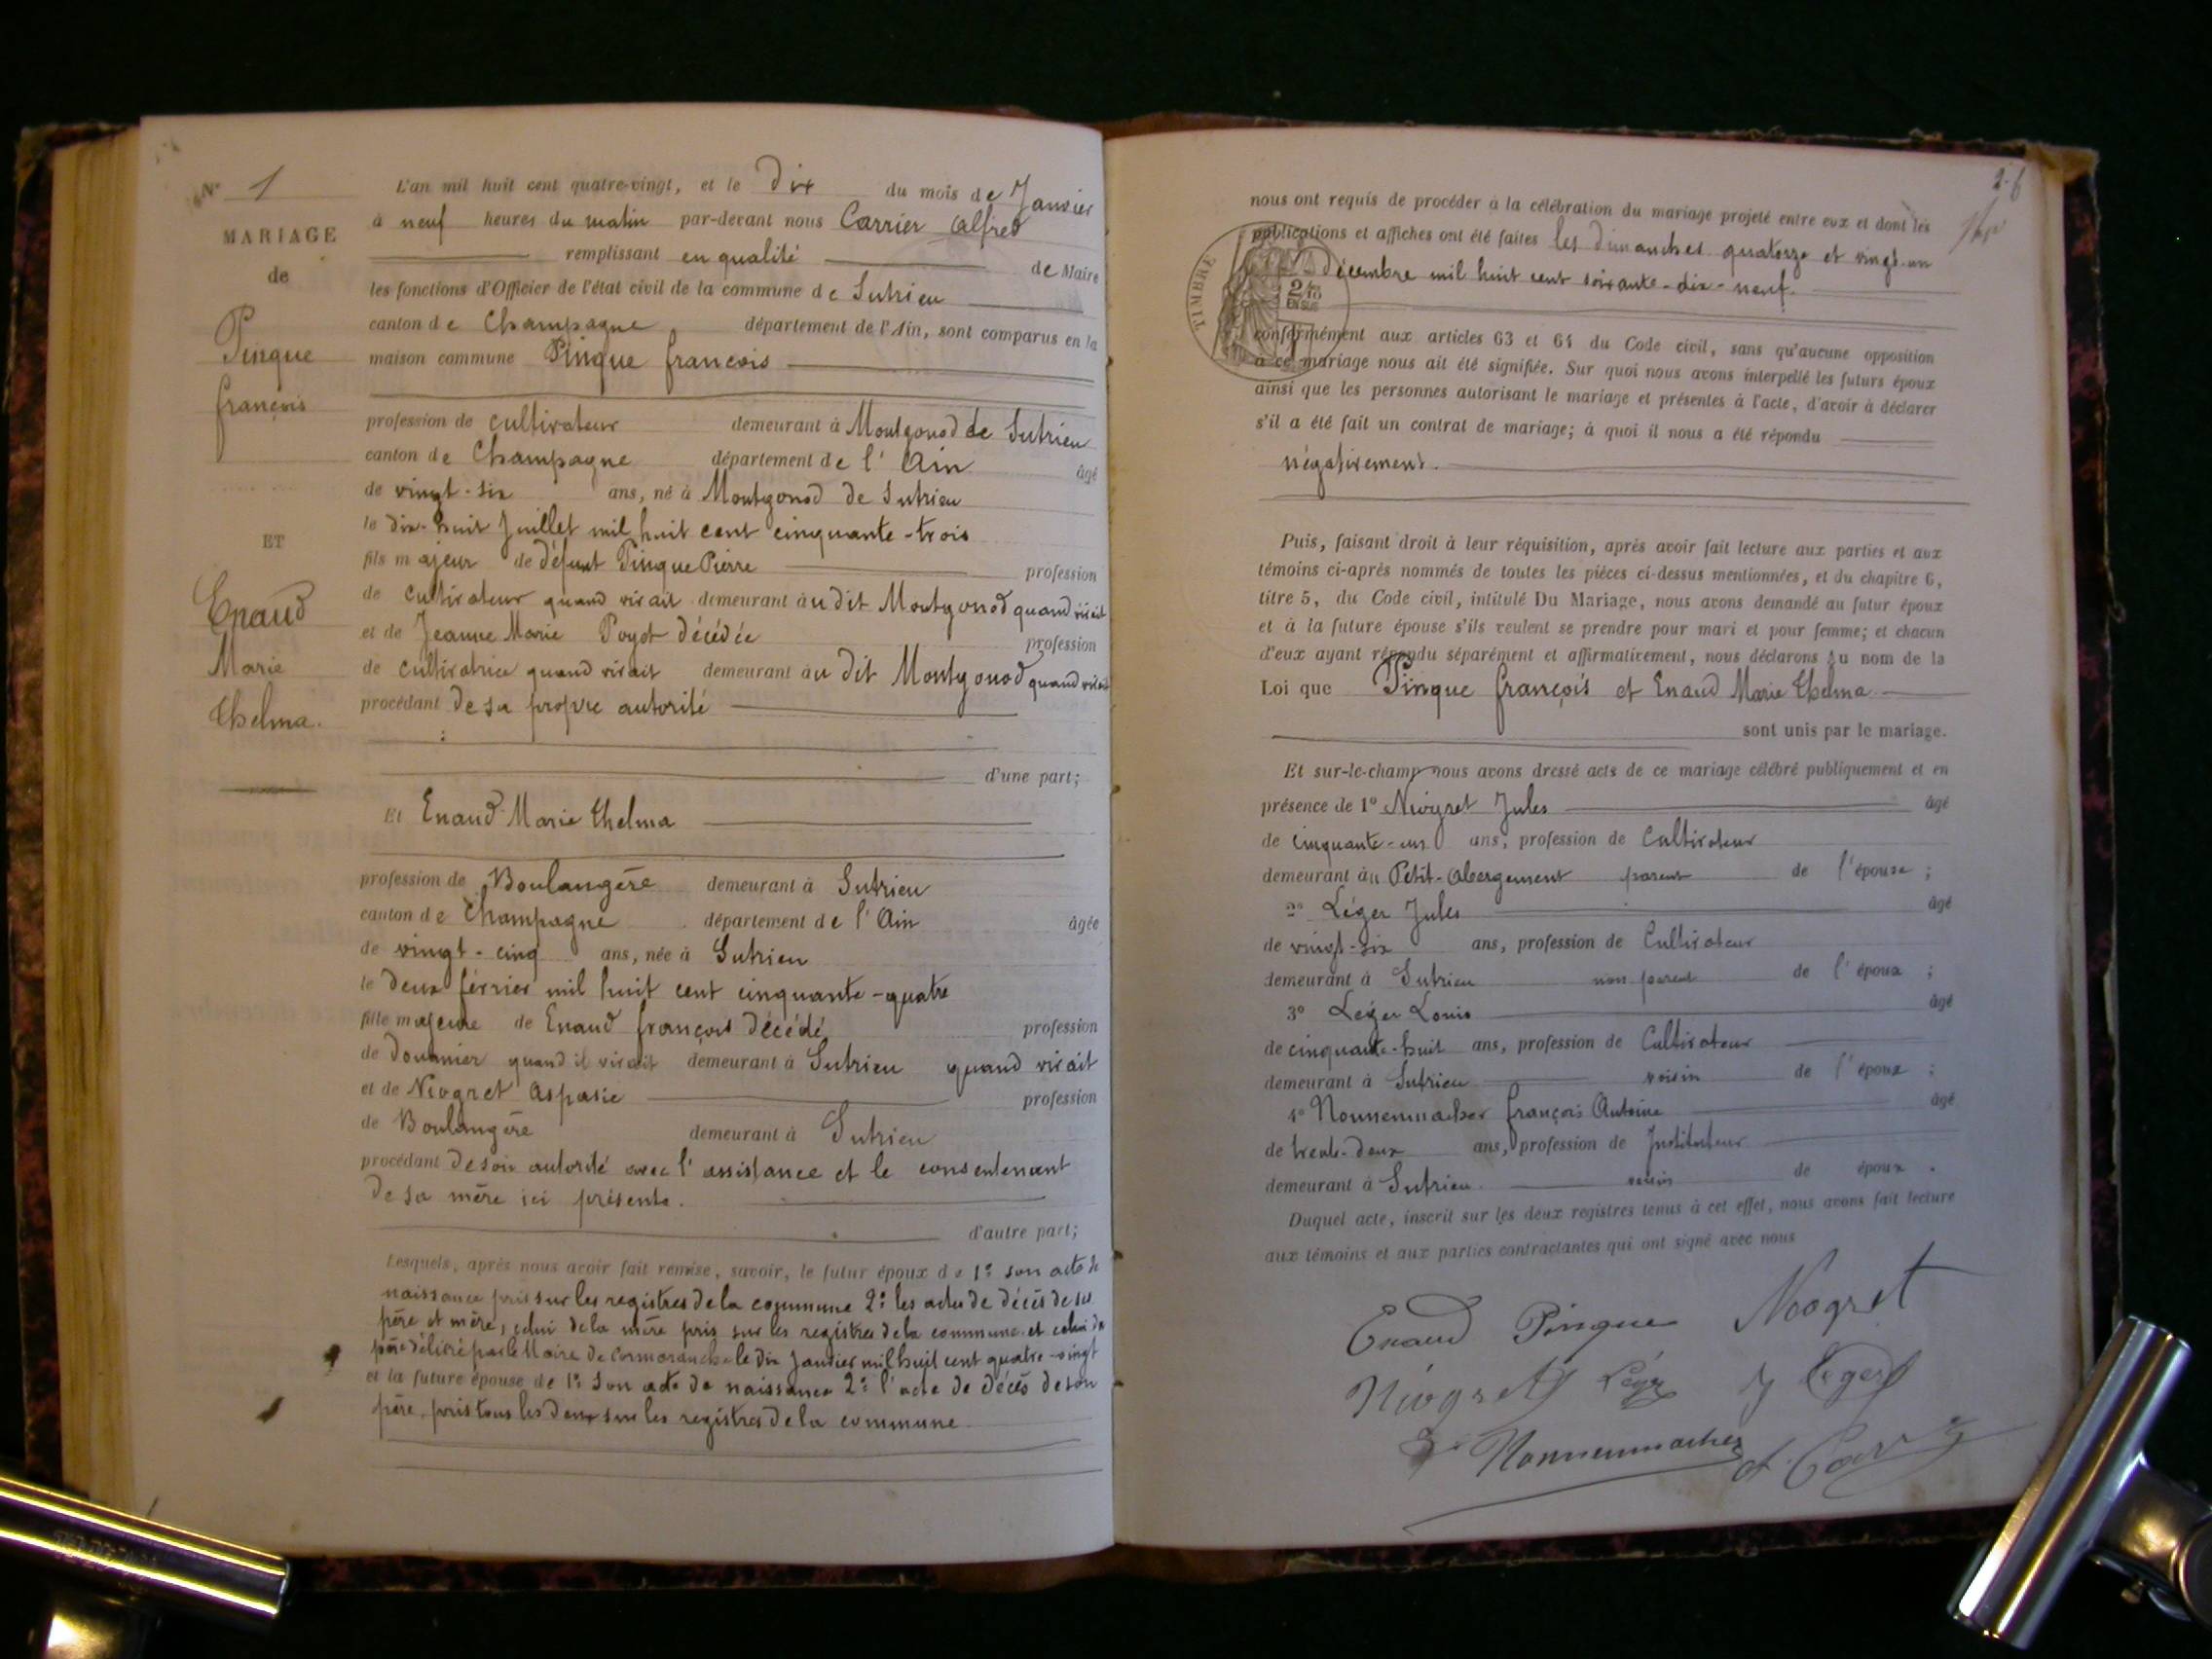 N° 1
MARIAGE
de
Pinque
françois
ET
Enaud
Marie
thelma.
L'an mil huit cent quatre-vingt, et le Dix du mois de Janvier
à neuf heures du matin par-devant nous Carrier Alfred
remplissant en qualité de Maire
les fonctions d'Officier de l'état civil de la commune de Sutrieu
canton de Champagne département de l'Ain, sont comparus en la
maison commune Pinque françois
profession de cultivateur demeurant à Montgonod de Sutrieu
canton de Champagne département de l'Ain âgé
de vingt-six ans, né à Montgonod de Sutrieu
le dix-huit Juillet mil huit cent cinquante-trois
fils majeur de défunt Pinque Pierre profession
de cultivateur quand vivait demeurant audit Montgonod quand vivait
et de Jeanne Marie Poyot décédée profession
de cultivatrice quand vivait demeurant au dit Montgonod quand vivait
procédant de sa propre autorité
d'une part;
Et Enaud Marie thelma
profession de Boulangère demeurant à Sutrieu
canton de Champagne département de l'Ain âgée
de vingt-cinq ans, née à Sutrieu
le deux février mil huit cent cinquante-quatre
fille majeure de Enaud françois décédé profession
de douanier quand il vivait demeurant à Sutrieu quand vivait
et de Niogret Aspasie profession
de Boulangère demeurant à Sutrieu
procédant de son autorité avec l'assistance et le consentement
de sa mère ici présente.
d'autre part;
Lesquels, après nous avoir fait remise, savoir, le futur époux de 1° son acte de
naissance pris sur les registres de la commune 2° les actes de décès de ses
père et mère, celui de la mère pris sur les registres de la commune et celui du
père délivré par le Maire de Cormoranche le dix Janvier mil huit cent quatre-vingt
et la future épouse de 1° son acte de naissance 2° l'acte de décès de son
père, pris tous les deux sur les registres de la commune
nous ont requis de procéder à la célébration du mariage projeté entre eux et dont les
publications et affiches ont été faites les dimanches quatorze et vingt-un
décembre mil huit cent soixante-dix-neuf.
TIMBRE
2/10
EN SUS
conformément aux articles 63 et 64 du Code civil, sans qu'aucune opposition
à ce mariage nous ait été signifiée. Sur quoi nous avons interpellé les futurs époux
ainsi que les personnes autorisant le mariage et présentes à l'acte, d'avoir à déclarer
s'il a été fait un contrat de mariage; à quoi il nous a été répondu
négativement.
Puis, faisant droit à leur réquisition, après avoir fait lecture aux parties et aux
témoins ci-après nommés de toutes les pièces ci-dessus mentionnées, et du chapitre 6,
titre 5, du Code civil, intitulé Du Mariage, nous avons demandé au futur époux
et à la future épouse s'ils veulent se prendre pour mari et pour femme; et chacun
d'eux ayant répondu séparément et affirmativement, nous déclarons au nom de la
Loi que Pinque françois et Enaud Marie thelma
sont unis par le mariage.
Et sur-le-champ nous avons dressé acte de ce mariage célébré publiquement et en
présence de 1° Niogret Jules âgé
de cinquante-un ans, profession de Cultivateur
demeurant au Petit-Abergement parent de l'épouse ;
2° Léger Jules âgé
de vingt-six ans, profession de Cultivateur
demeurant à Sutrieu non parent de l'époux ;
3° Léger Louis âgé
de cinquante-huit ans, profession de Cultivateur
demeurant à Sutrieu voisin de l'époux ;
4° Nonnenmacher françois Antoine âgé
de trente-deux ans, profession de Instituteur
demeurant à Sutrieu voisin de époux .
Duquel acte, inscrit sur les deux registres tenus à cet effet, nous avons fait lecture
aux témoins et aux parties contractantes qui ont signé avec nous
Enaud Pinque Niogret
Niogret J Léger J Léger
Nonnenmacher